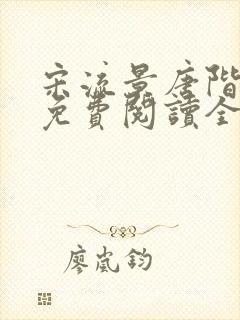 宋流景唐階
免費閱讀全
廖嵐鈞